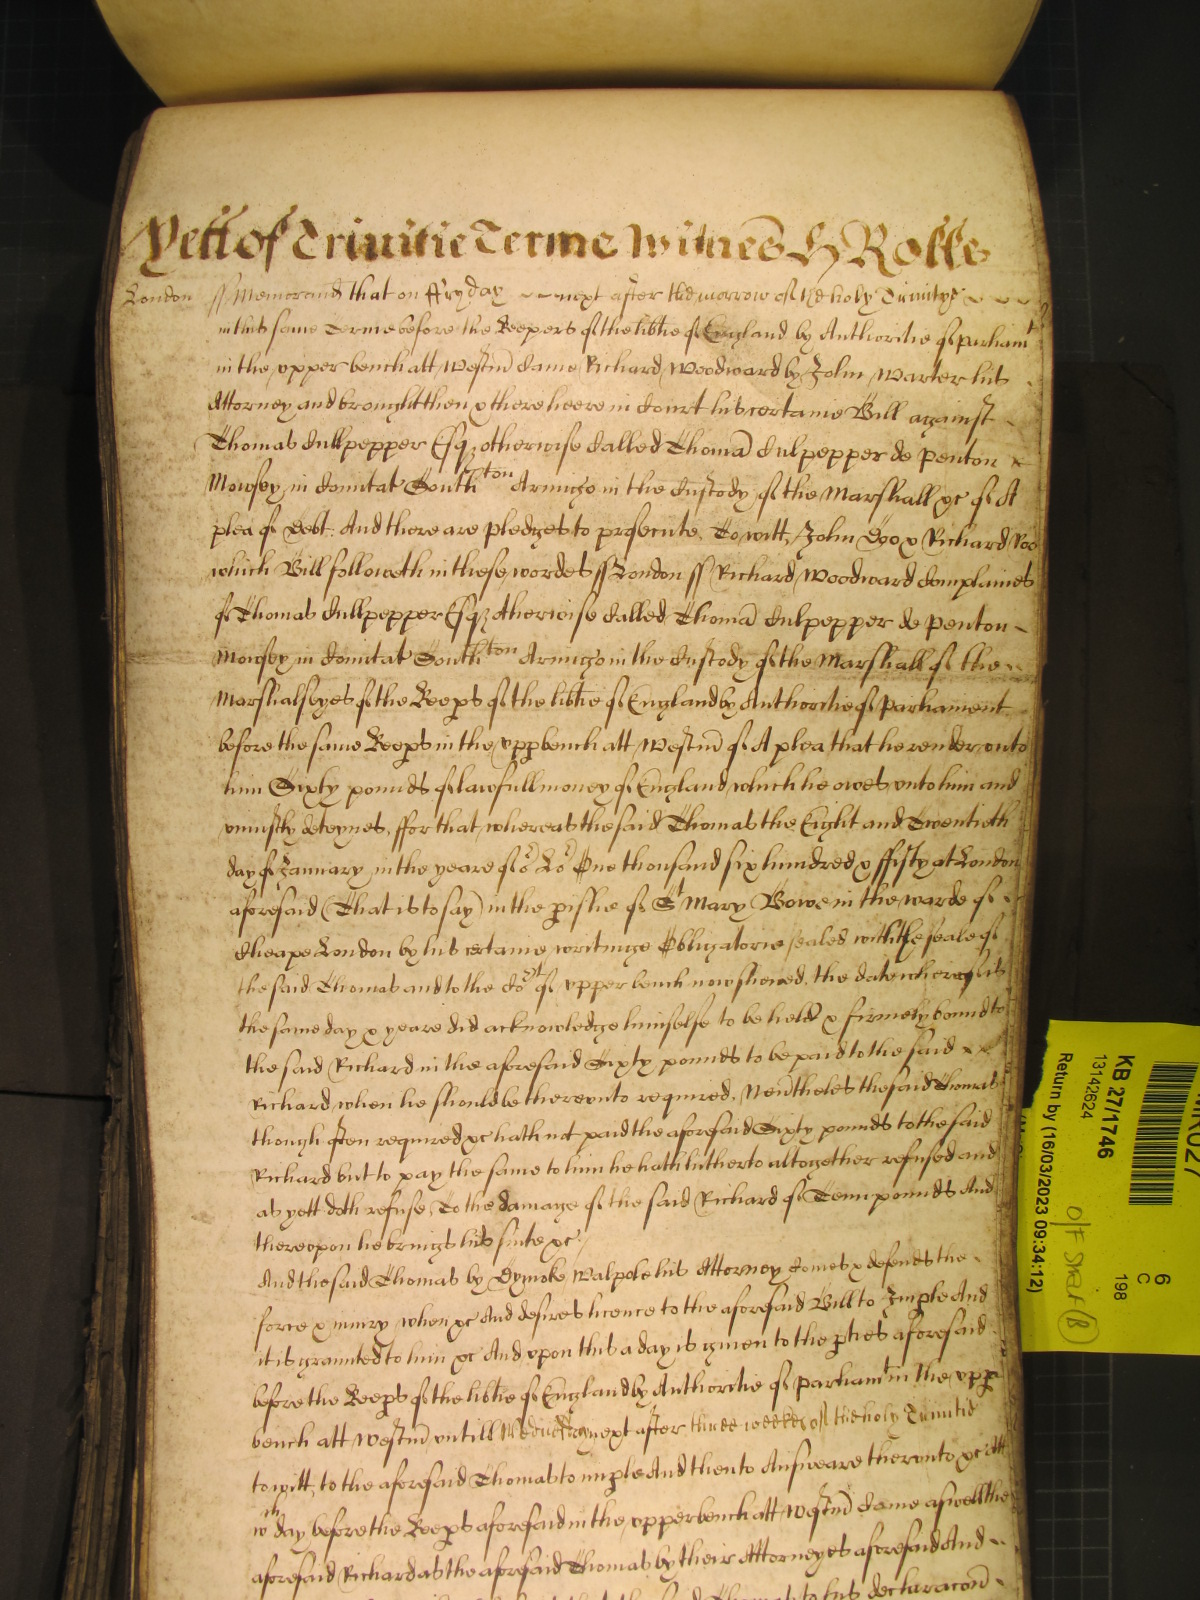 Yett of Trinitie Terme Witnes H Rolle
London ss Memorand that on ffryday next after the morrow of the holy Trinitye
in this same Terme before the Keepers of the libtie of England by Authoritie of Parliamt
in the vpper bench att Westm Came Richard Woodward by John Warter his
Attorney and brought then & there heere in Court his certaine Bill against
Thomas Cullpepper Esqz otherwise Called Thoma Culpepper de Penton
Mowsey in Comitat Southton Armigo in the Custody of the Marshall &c of A
plea of Debt. And there are pledges to prosecute, To witt, John Doo & Richard Roo
which Bill followeth in these wordes ss London ss Richard Woodward Complaines
of Thomas Cullpepper Esqz otherwise Called Thoma Culpepper de Penton
Mowsey in Comitat Southton Armigo in the Custody of the Marshall of the
Marshalseyes of the Keeps of the libtie of England by Authoritie of Parliament
before the same Keeps in the vpp bench att Westm of A plea that he render vnto
him Sixty pounds of lawfull money of England which he owes vnto him and
vniustly deteynes, ffor that whereas the said Thomas the Eight and Twentieth
day of January in the yeare of or Lord One thousand six hundred & ffifty at London
aforesaid (That is to say) in the pishe of St Mary Bowe in the warde of
Cheape London by his certaine writinge Obligatorie sealed with the seale of
the said Thomas and to the Cort of vpper bench now shewed, the date whereof is
the same day & yeare did acknowledge himselfe to be held & firmely bound to
the said Richard in the aforesaid Sixty pounds to be paid to the said
Richard when he should be therevnto required, Neutheles the said Thomas
though often required &c hath not paid the aforesaid Sixty pounds to the said
Richard but to pay the same to him he hath hitherto altogether refused and
as yett doth refuse, To the damage of the said Richard of Tenn pounds And
therevpon he brings his suite &c
And the said Thomas by Dymoke Walpole his Attorney Comes & defends the
force & iniury when &c And desires licence to the aforesaid Bill to Imple And
it is graunted to him &c And vpon this a day is giuen to the pties aforesaid
before the Keeps of the libtie of England by Authoritie of Parliamt in the vpp
bench att Westm vntill Wednesday next after three weekes of the holy Trinitie
to witt, to the aforesaid Thomas to imple And then to Answeare therevnto &c Att
wch day before the Keeps aforesaid in the vpper bench att Westm Came aswell the
aforesaid Richard as the aforesaid Thomas by their Attorneyes aforesaid And
Thomas to his declaracon
KB 27/1746
13142624
Return by (16/03/2023 09:34:12)
6
C
198